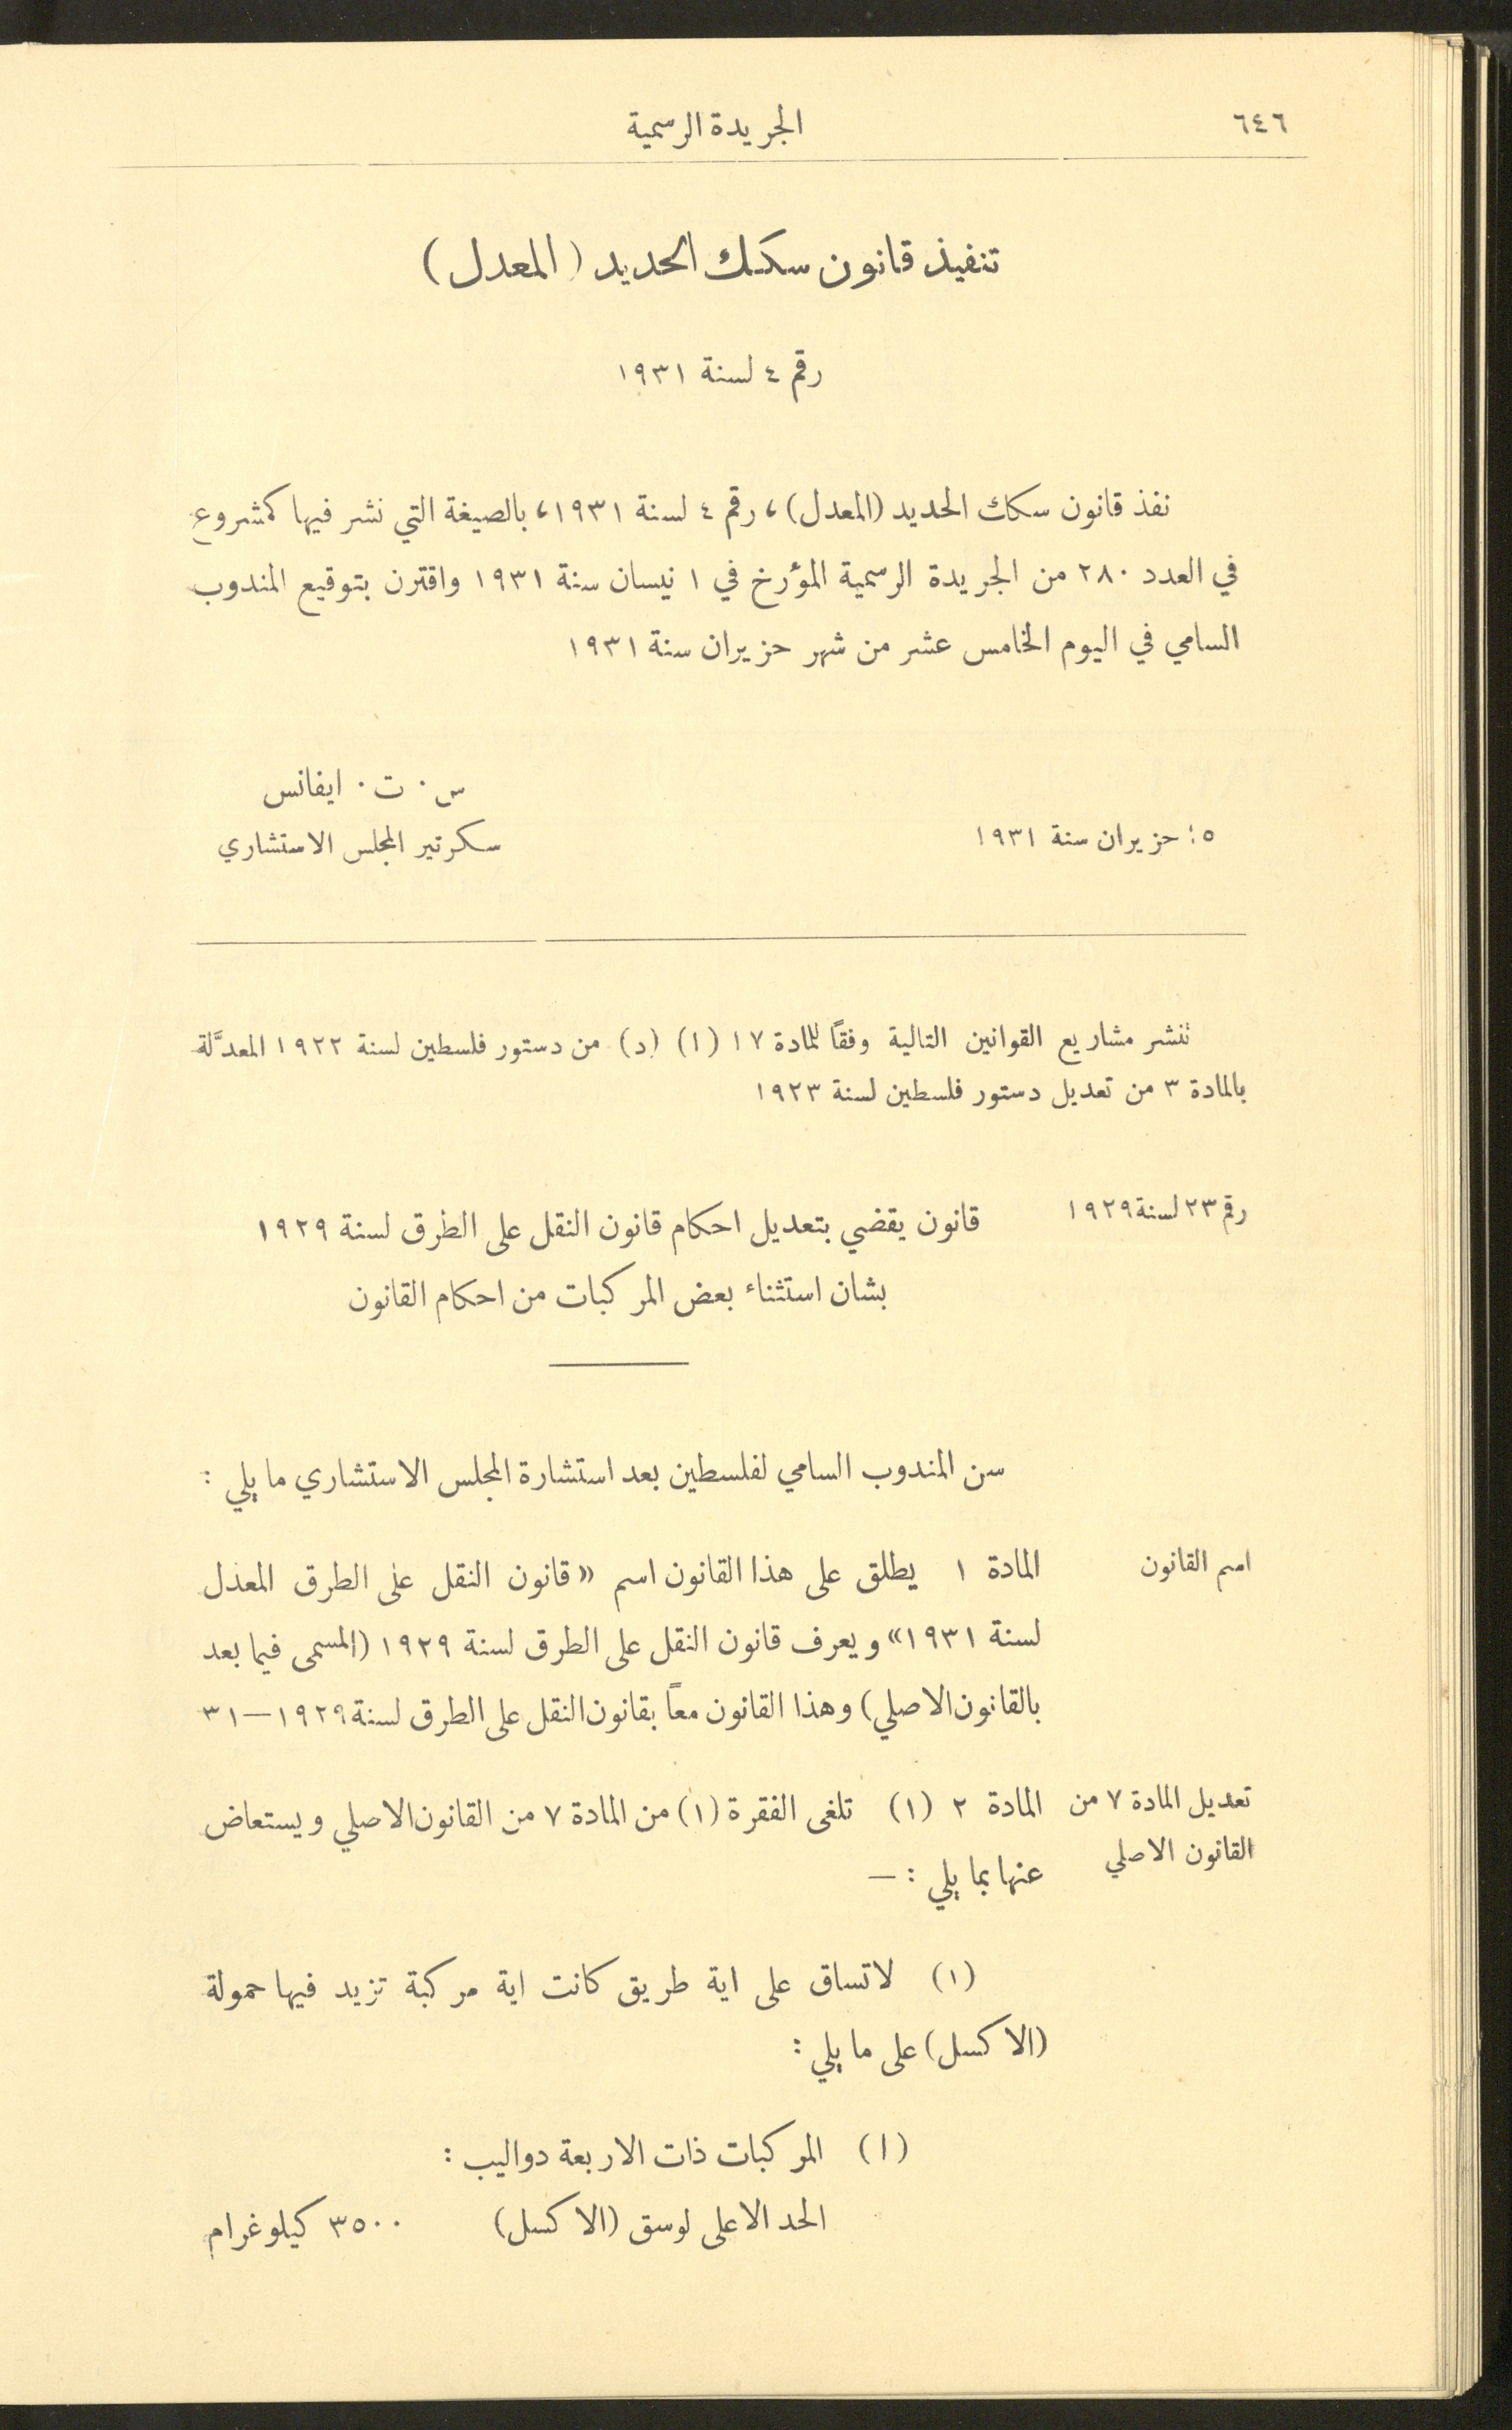 ٦٤٦
الجريدة الرسمية
تنفيذ قانون سكك الحديد (المعدل)
رقم ٤ لسنة ١٩٣١
نفذ قانون سكك الحديد (المعدل)، رقم ٤ لسنة ١٩٣١، بالصيغة التي نشر فيها كمشروع
في العدد ٢٨٠ من الجريدة الرسمية المؤرخ في ١ نيسان سنة ١٩٣١ واقترن بتوقيع المندوب
السامي في اليوم الخامس عشر من شهر حزيران سنة ١٩٣١
س. ت. ايفانس
١٥ حزيران سنة ١٩٣١
سكرتير المجلس الاستشاري
تنشر مشاريع القوانين التالية وفقاً للمادة ١٧ (١) (د) من دستور فلسطين لسنة ١٩٢٢ المعدَّلة
بالمادة ٣ من تعديل دستور فلسطين لسنة ١٩٢٣
رقم ٢٣ لسنة ١٩٢٩
قانون يقضي بتعديل احكام قانون النقل على الطرق لسنة ١٩٢٩
بشان استثناء بعض المركبات من احكام القانون
سن المندوب السامي لفلسطين بعد استشارة المجلس الاستشاري ما يلي :
اسم القانون
المادة ١ يطلق على هذا القانون اسم «قانون النقل على الطرق المعدل
لسنة ١٩٣١» ويعرف قانون النقل على الطرق لسنة ١٩٢٩ (المسمى فيما بعد
بالقانون الاصلي) وهذا القانون معاً بقانون النقل على الطرق لسنة ١٩٢٩—٣١
تعديل المادة ٧ من
القانون الاصلي
المادة ٢ (١) تلغى الفقرة (١) من المادة ٧ من القانون الاصلي ويستعاض
عنها بما يلي : —
(١) لا تساق على اية طريق كانت اية مركبة تزيد فيها حمولة
(الاكسل) على ما يلي :
(ا) المركبات ذات الاربعة دواليب :
الحد الاعلى لوسق (الاكسل) ٣٥٠٠ كيلوغرام